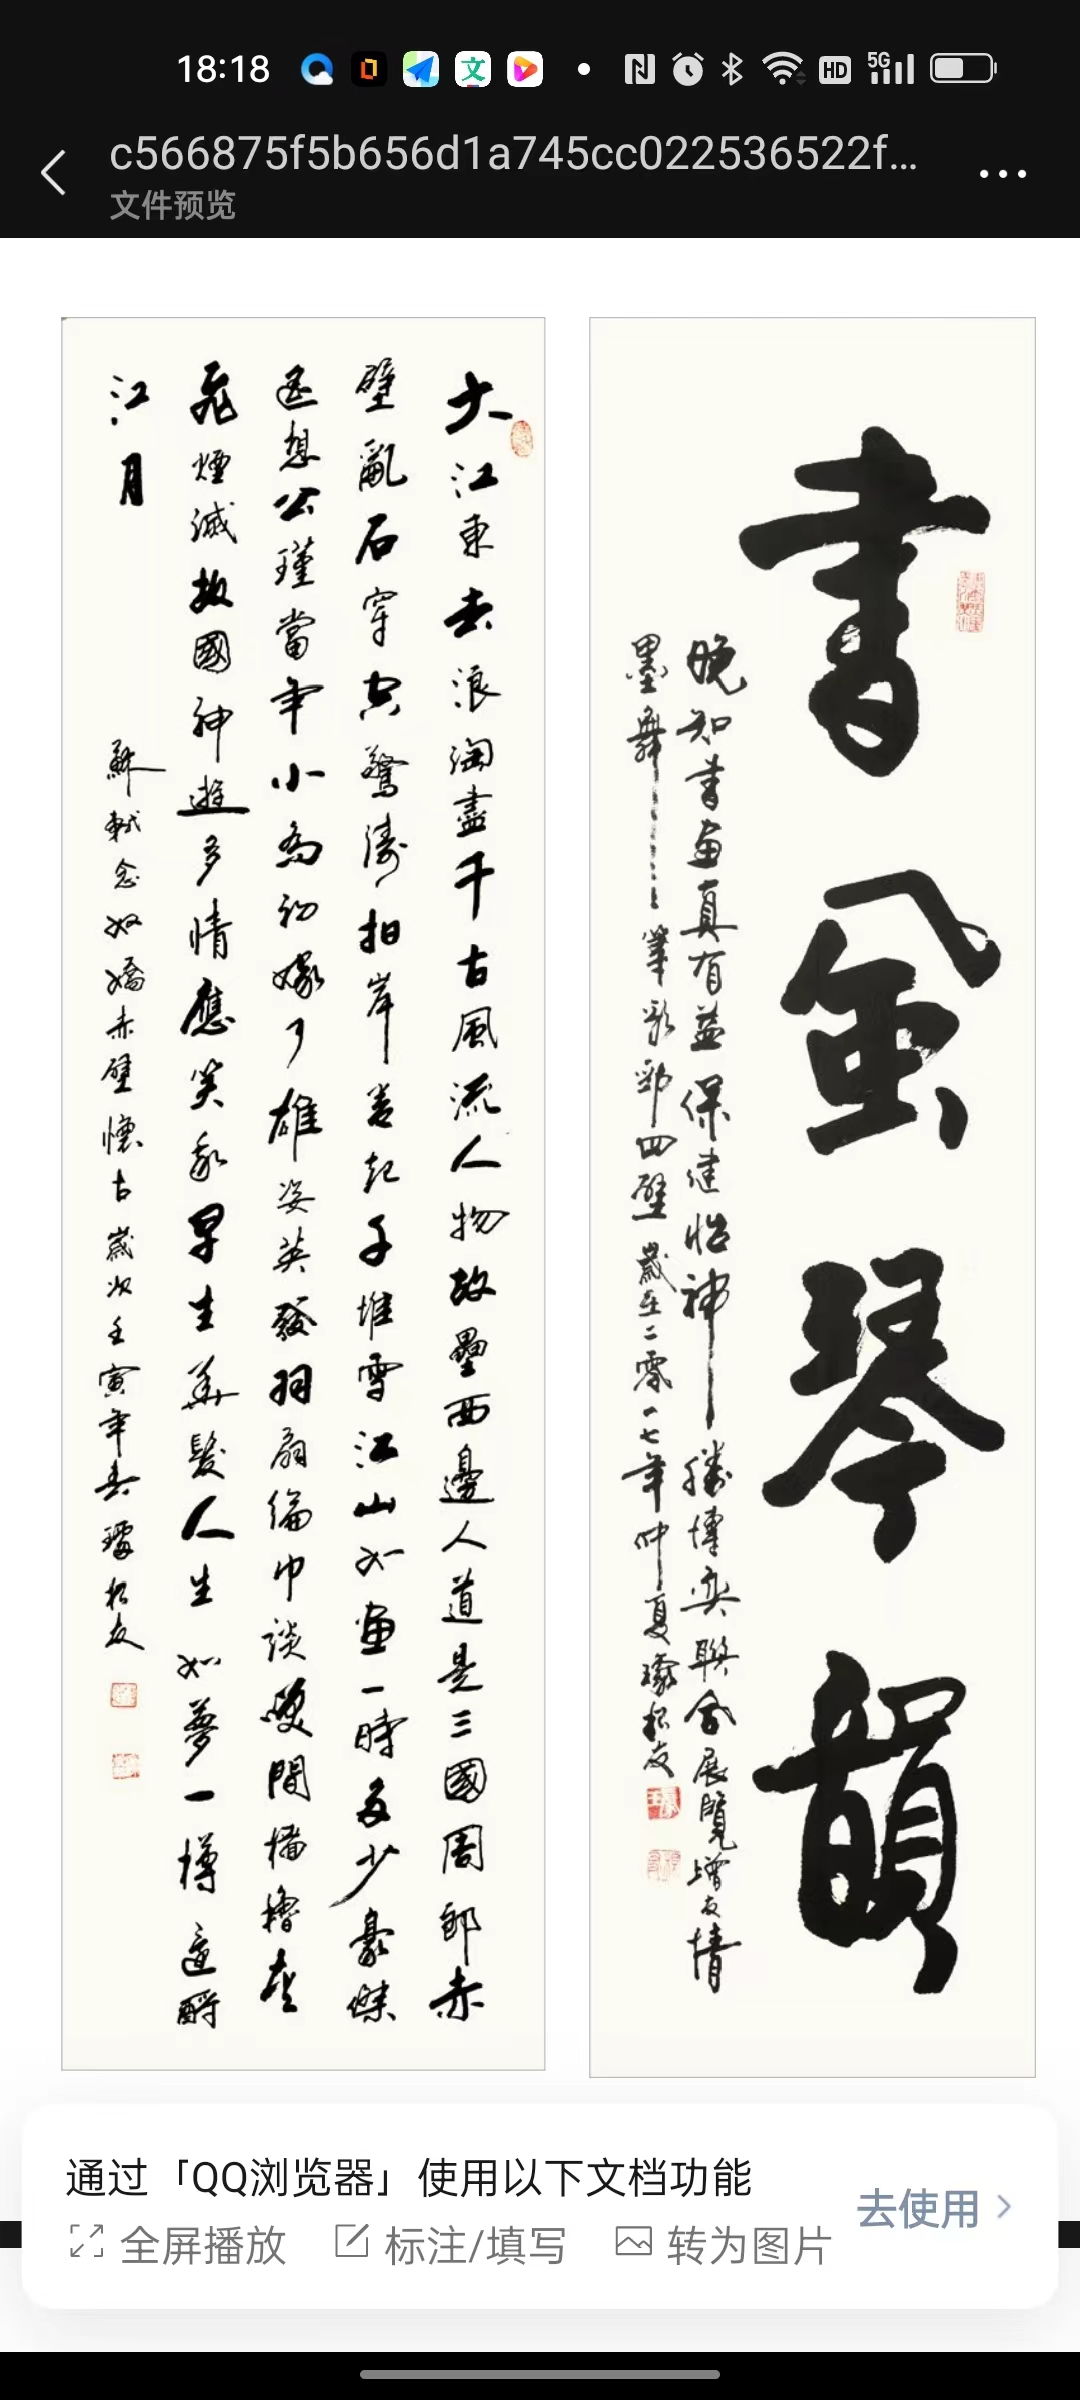 18:18
HD
5G
c566875f5b656d1a745cc022536522f...
文件预览
書風琴韻
晚知書畫真有益保健怡神勝博奕聯合展覽增友情
墨舞筆歌勁四壁歲在二零一七年仲夏璩松友
大江東去浪淘盡千古風流人物故壘西邊人道是三國周郎赤
壁亂石穿空驚濤拍岸卷起千堆雪江山如畫一時多少豪傑
遥想公瑾當年小喬初嫁了雄姿英發羽扇綸巾談笑間檣櫓灰
飛煙滅故國神遊多情應笑我早生華髮人生如夢一樽還酹
江月
蘇軾念奴嬌赤壁懷古歲次壬寅年春璩松友
通过「QQ浏览器」使用以下文档功能
全屏播放 标注/填写 转为图片
去使用